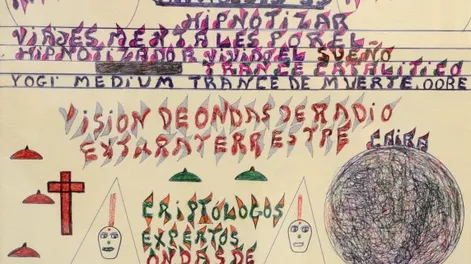 HIPNOTIZAR
VIAJES MENTALES POR EL
HIPNOTIZADOR VIVIDO EL SUEÑO
TRANCE CATALITICO
YOGI MEDIUM TRANCE DE MUERTE. OOBE
VISION DE ONDAS DE RADIO
EXTRATERRESTRE
CAIBA
CRIPTOLOGOS
EXPERTOS
ONDAS DE